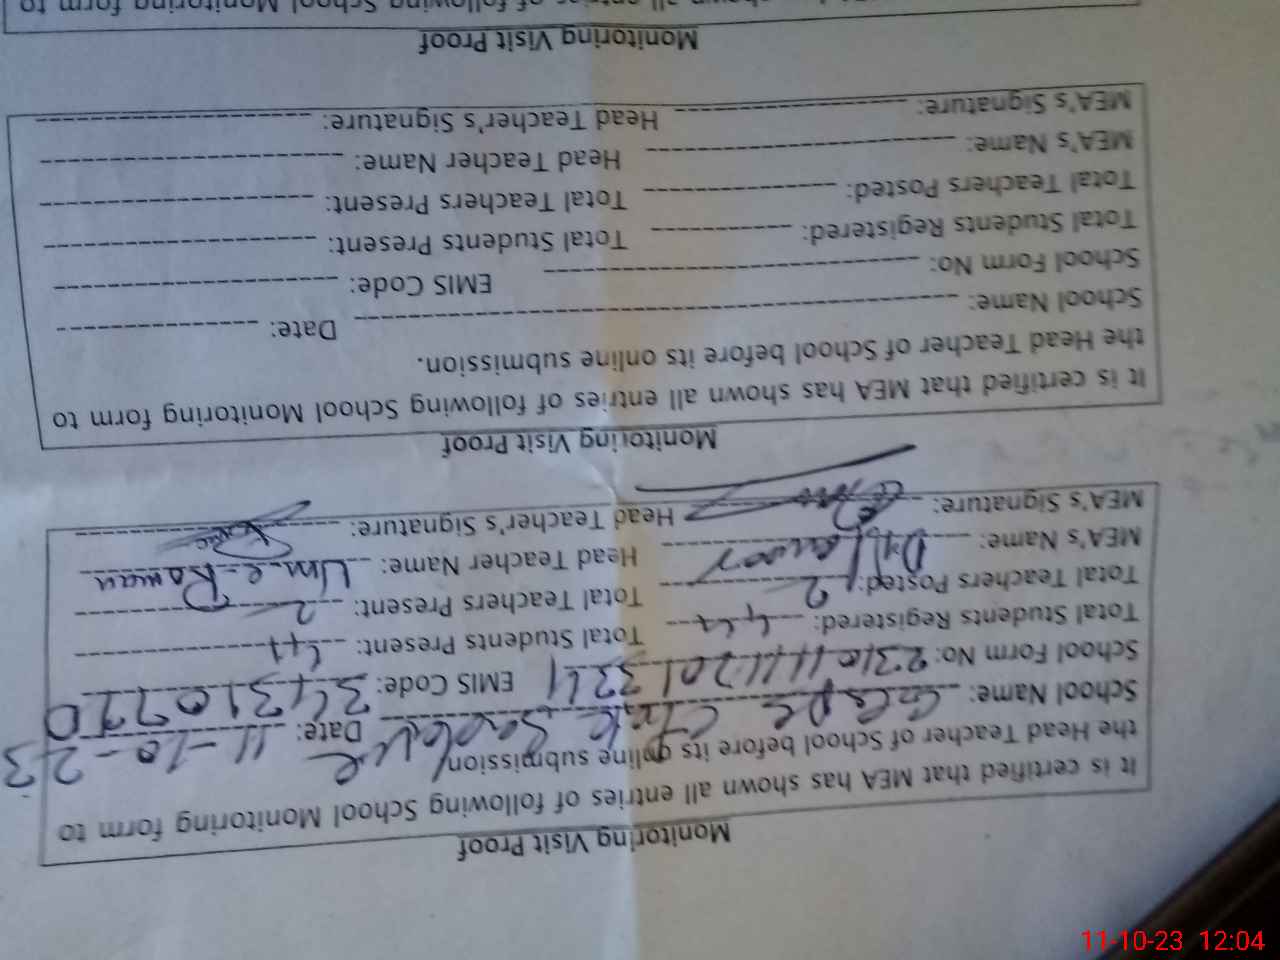 Monitoring Visit Proof
It is certified that MEA has shown all entries of following School Monitoring form to
the Head Teacher of School before its online submission.
School Name: Date: 11-10-23
School Form No: EMIS Code: 34310770
Total Students Registered: Total Students Present:
Total Teachers Posted: 2 Total Teachers Present: 2
MEA's Name: Head Teacher Name: Ume-Roman
MEA's Signature: Head Teacher's Signature:
Monitoring Visit Proof
It is certified that MEA has shown all entries of following School Monitoring form to
the Head Teacher of School before its online submission.
School Name: Date:
School Form No: EMIS Code:
Total Students Registered: Total Students Present:
Total Teachers Posted: Total Teachers Present:
MEA's Name: Head Teacher Name:
MEA's Signature: Head Teacher's Signature:
Monitoring Visit Proof
shown all entries of following School Monitoring form to
11-10-23 12:04